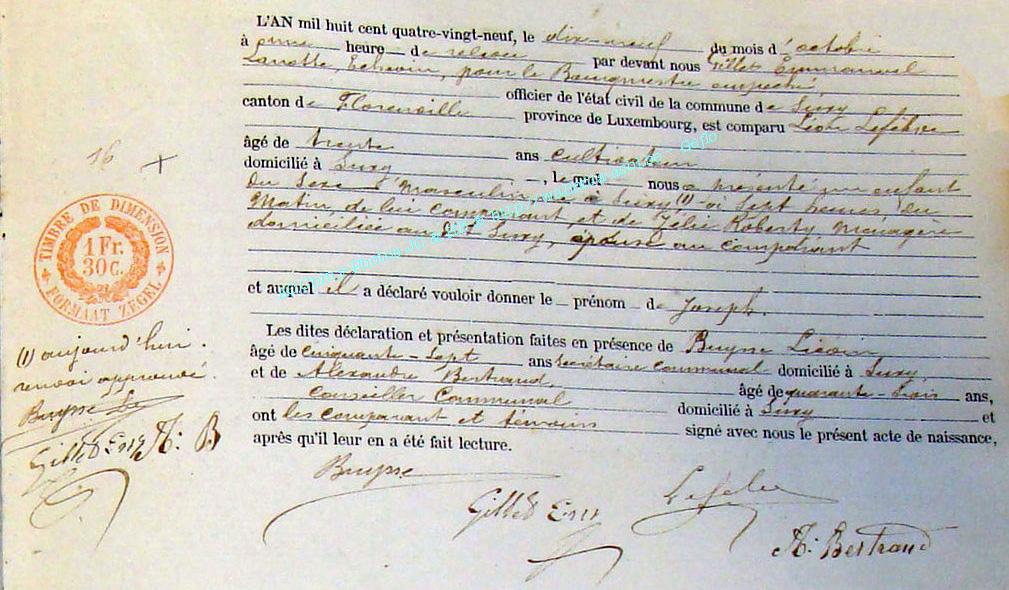 L'AN mil huit cent quatre-vingt-neuf, le dix-neuf du mois d'octobre
à onze heure de relevée par devant nous Gillet Emmanuel
Lanotte, Echevin, pour le Bourgmestre empêché,
officier de l'état civil de la commune de Suxy
canton de Florenville province de Luxembourg, est comparu Léon Lefèbvre
âgé de trente ans cultivateur
domicilié à Suxy, lequel nous a présenté un enfant
du Sexe Masculin, né à Suxy (1) à Sept heures du
Matin de lui comparant et de Félie Roberty, Ménagère
domiciliée au dit Suxy, épouse au comparant
et auquel il a déclaré vouloir donner le prénom de Joseph.
Les dites déclaration et présentation faites en présence de Buysse
âgé de Cinquante-Sept ans secrétaire Communal domicilié à Suxy,
et de Alexandre Bertrand, âgé de quarante-trois ans,
Conseiller Communal domicilié à Suxy et
ont les comparant et témoins signé avec nous le présent acte de naissance,
après qu'il leur en a été fait lecture.
Buysse
Gillet Em
Lefèbv
A: Bertrand
16
TIMBRE DE DIMENSION
1 Fr.
30 C.
FORMAAT ZEGEL
(1) aujourd'hui.
renvoi approuvé.
Buysse
Gillet Em A: B